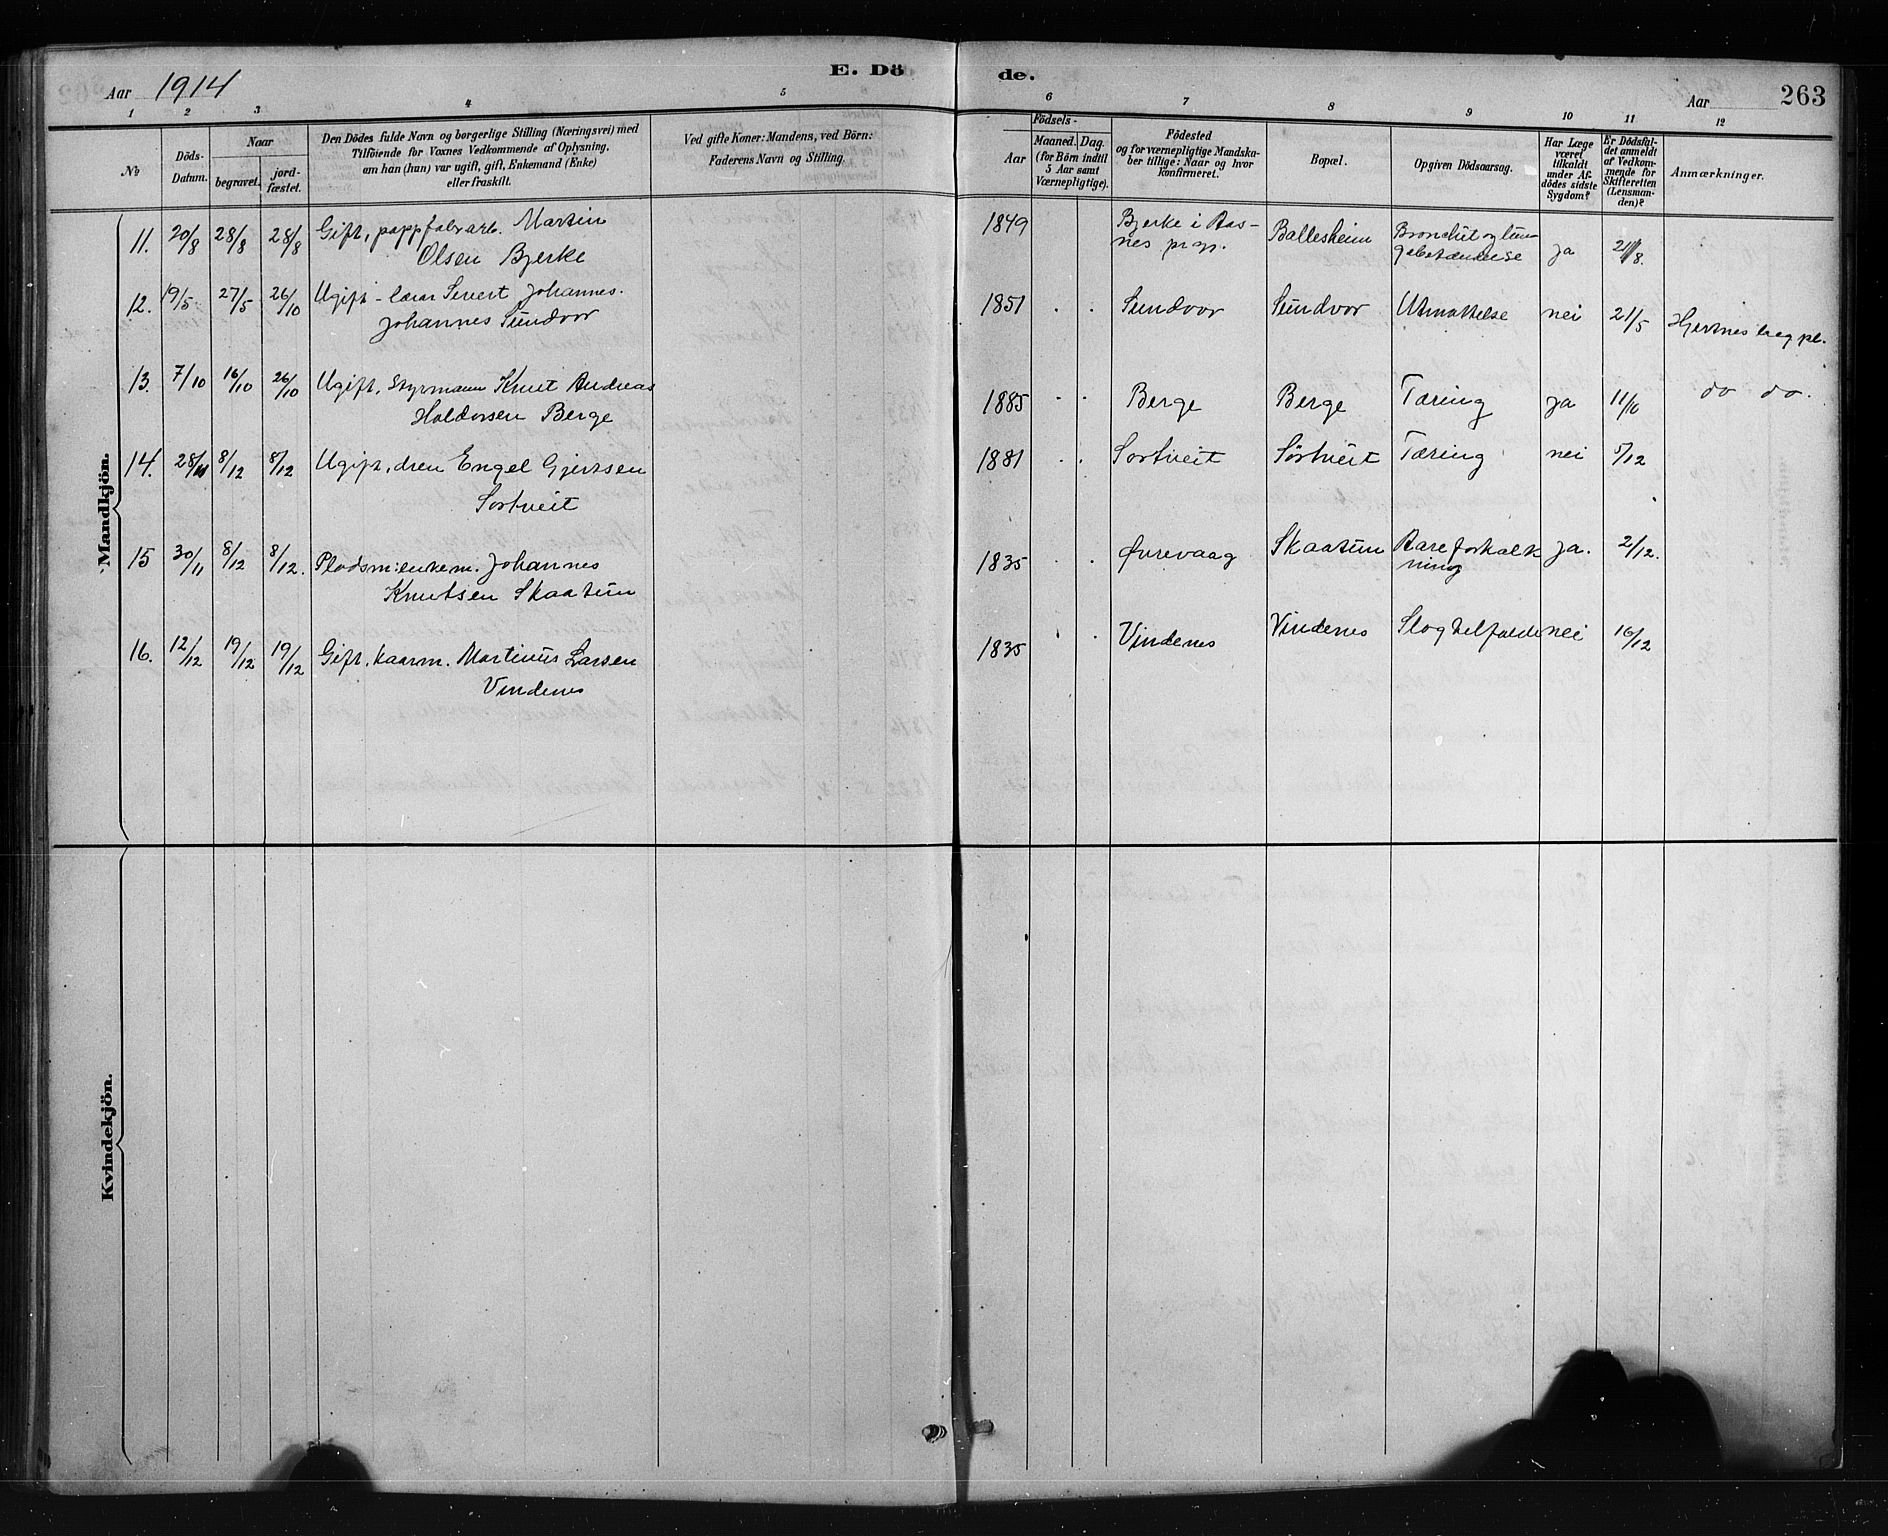 E. Dö de.
Aar 1914
Aar 263
1 2 3 4 5 6 7 8 9 10 11 12
№
Döds-Datum.
Naar
begravet.
jord-fæstet.
Den Dödes fulde Navn og borgerlige Stilling (Næringsvei) med
Tilföiende for Voxnes Vedkommende af Oplysning,
om han (hun) var ugift, gift, Enkemand (Enke)
eller fraskilt.
Ved gifte Koner: Mandens, ved Börn:
Faderens Navn og Stilling.
Födsels-
Aar
Maaned. Dag.
(for Börn indtil
5 Aar samt
Værnepligtige).
Födested
og for værnepligtige Mandska-
ber tillige: Naar og hvor
konfirmeret.
Bopæl.
Opgiven Dödsaarsag.
Har Læge
været
tilkaldt
under Af-
dødes sidste
Sygdom?
Er Dödsfal-
det anmeldt
af Vedkom-
mende for
Skifteretten
(Lensman-
den)?
Anmærkninger.
Mandkjön.
11. 20/8 28/8 28/8 Gift, pappfabrarb. Martin
Olsen Bjerke
1849 Bjerke i Aas-
nes prgj. Ballesheim Bronchit og lun-
gebetændelse ja 21/8.
12. 19/5 27/5 26/10 Ugift - lærar Sivert Johannes.
Johannes Sundvor
1851 Sundvor Sundvor Utmattelse nei 21/5 Hjertnes lægpl.
13. 7/10 16/10 26/10 Ugift, styrmann Knut Andreas
Haldorsen Berge
1885 Berge Berge Tæring ja 11/10 do do.
14. 28/11 8/12 8/12 Ugift, dren Engel Gjertsen
Sortveit
1881 Sortveit Sørtveit Tæring nei 5/12
15 30/11 8/12 8/12. Pladsm: enkem. Johannes
Knutsen Skaatun
1835 Øvrevaag Skaatun Aareforkalk
ning ja. 2/12.
16. 12/12 19/12 19/12 Gift, kaarm. Martinus Larsen
Vindenes
1835 Vindenes Vindenes Slagtilfælde nei 16/12
Kvindekjön.